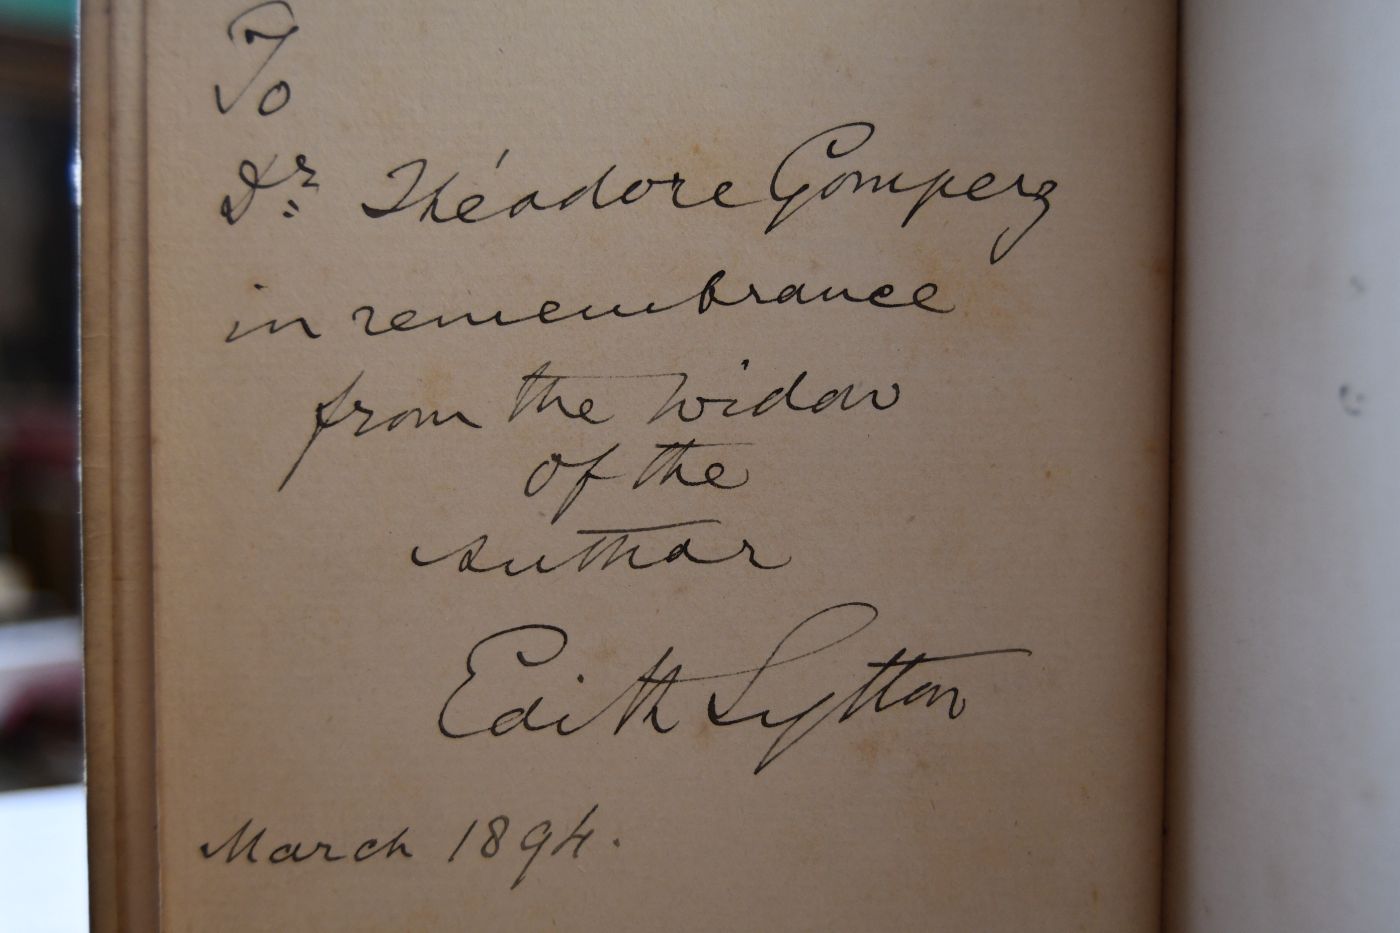 To
Dr. Théodore Gomperz
in remembrance
from the widow
of the
Author
Edith Lytton
March 1894.